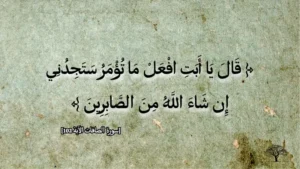 ﴿ قَالَ يَا أَبَتِ افْعَلْ مَا تُؤْمَرُ سَتَجِدُنِي
إِن شَاءَ اللَّهُ مِنَ الصَّابِرِينَ ﴾
[سورة الصافات الآية 102]